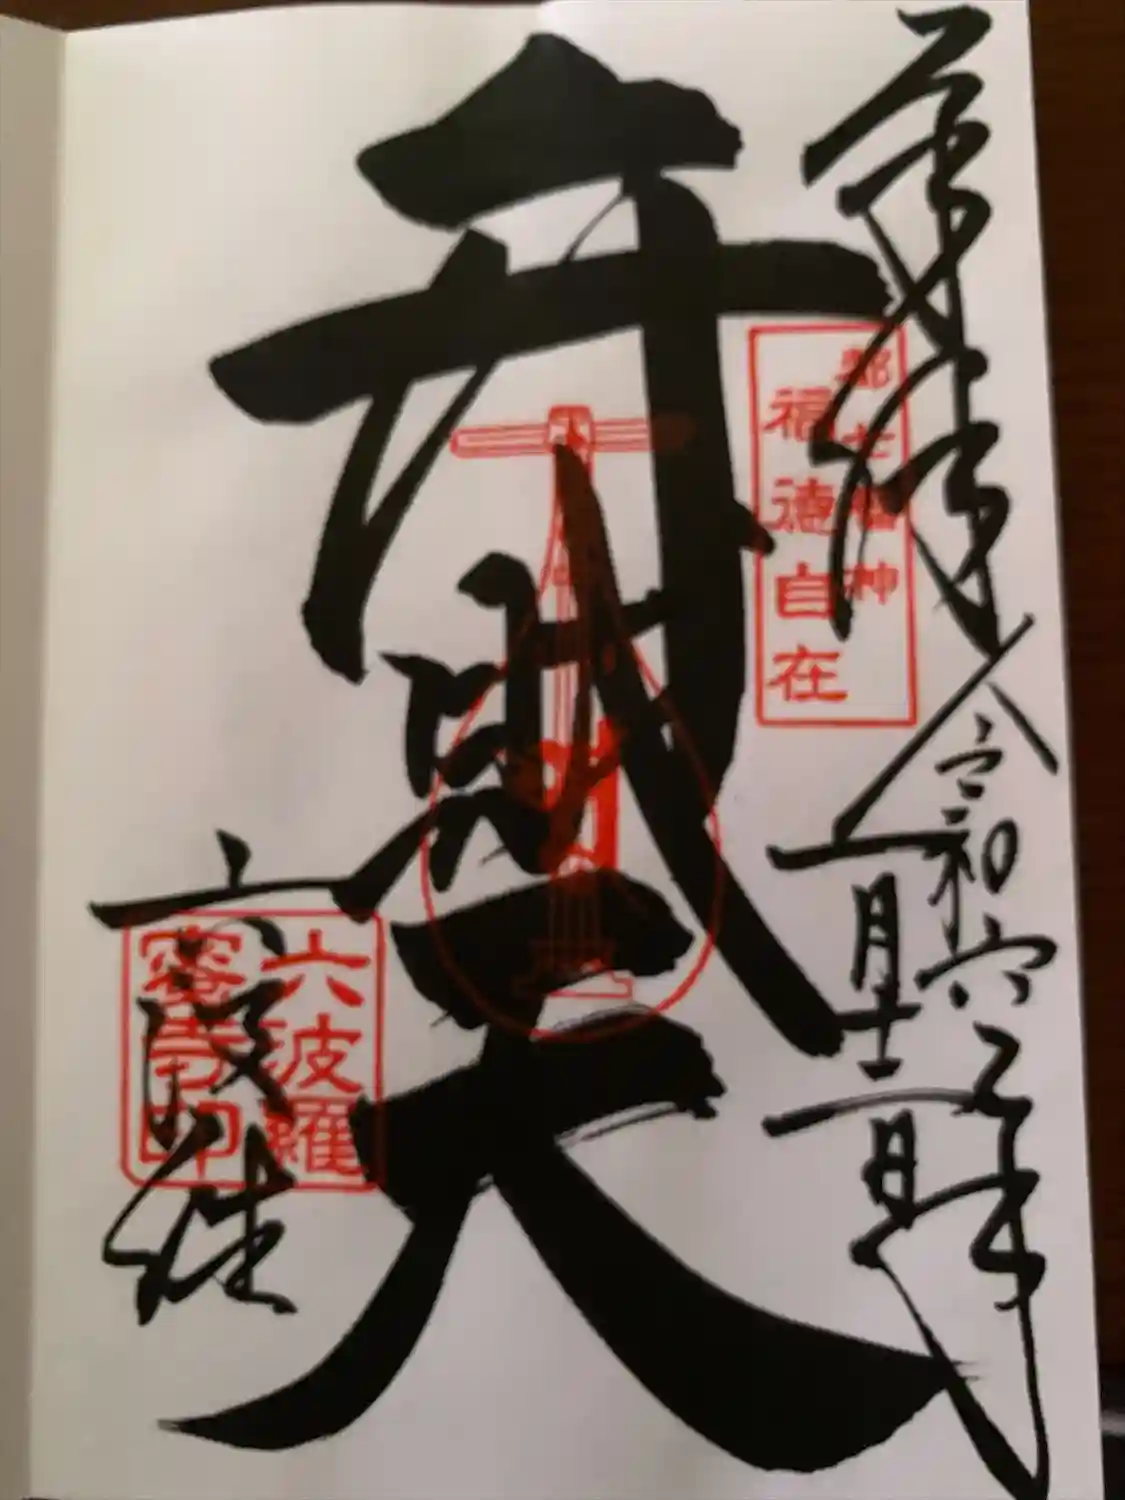 奉拝
令和六年
一月十二日
都七福神
福徳自在
弁財天
六波羅
蜜寺印
六波羅蜜寺